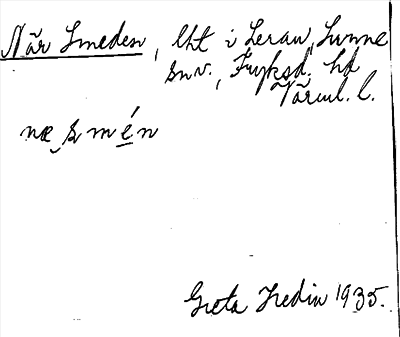 När Smeden, lht i Leran, Sunne
snv., Fryksd. hd
Värml. l.
næ s m é n
Greta Hedin 1935.